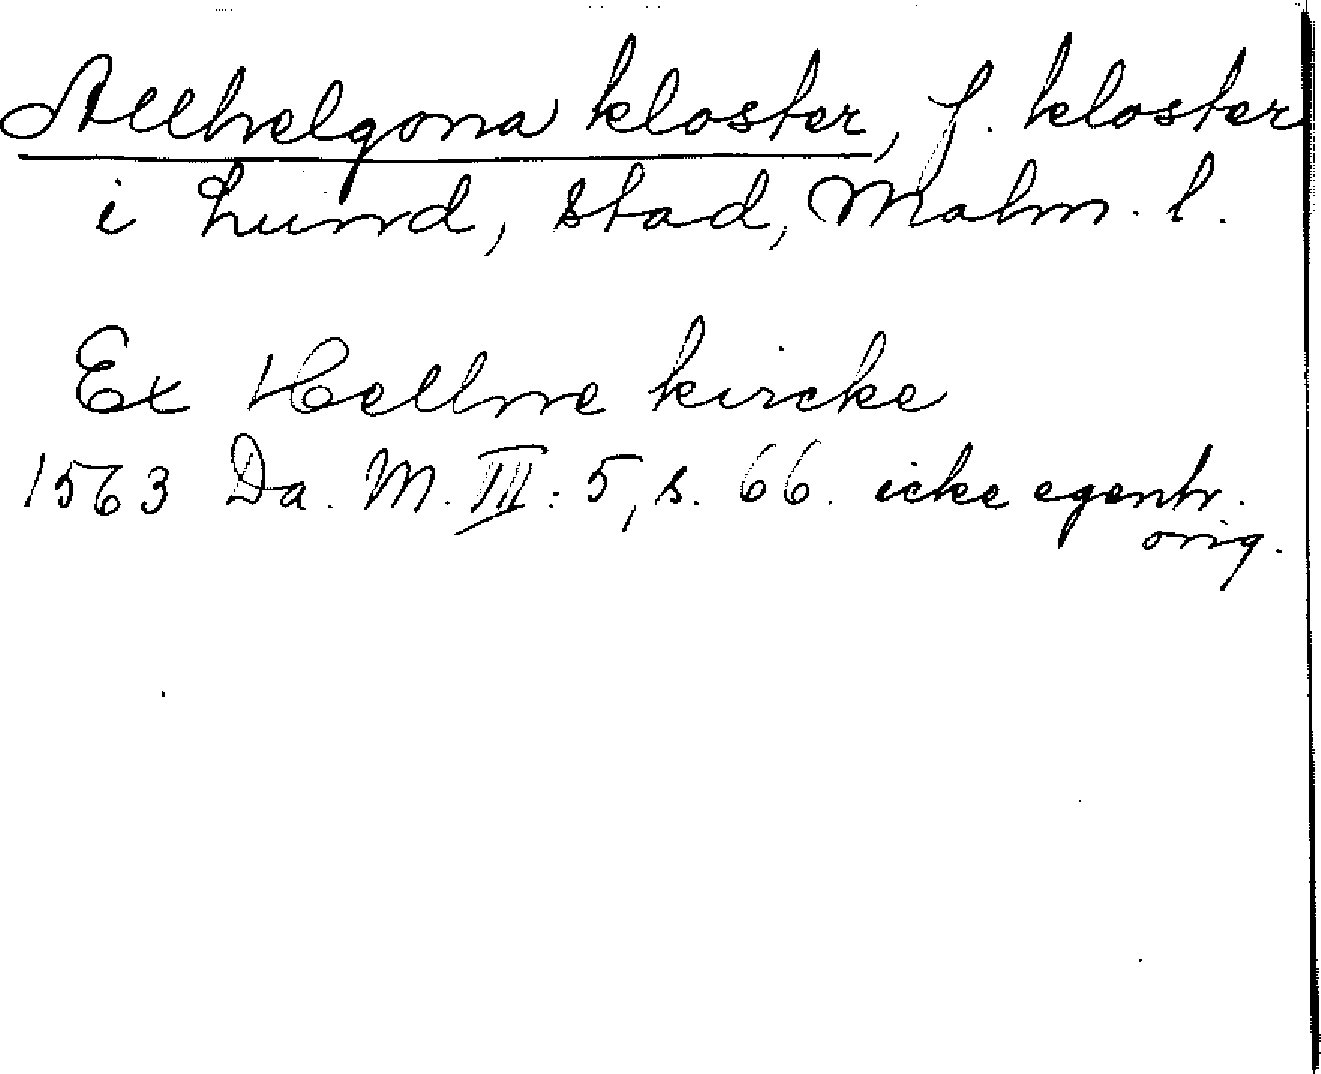 Allhelgona kloster, f. kloster
i Lund, stad, Malm. l.
Ex Hellne kircke
1563 Da. M. III: 5, s. 66. icke egentl.
orig.